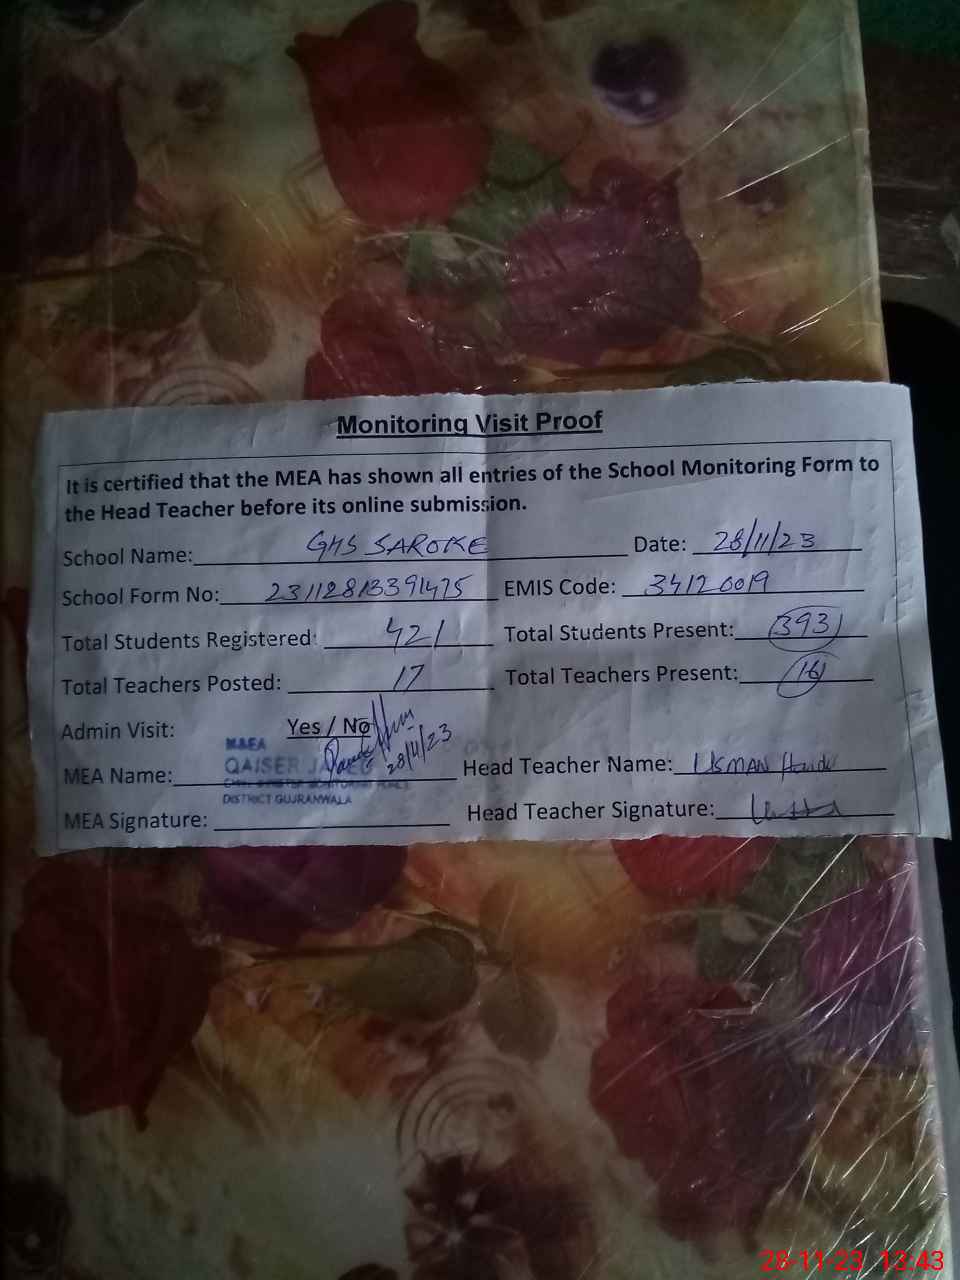 Monitoring Visit Proof
It is certified that the MEA has shown all entries of the School Monitoring Form to
the Head Teacher before its online submission.
School Name: GHS SAROKE Date: 28/11/23
School Form No: 23112813391475 EMIS Code: 34120019
Total Students Registered: 421 Total Students Present: 393
Total Teachers Posted: 17 Total Teachers Present: 16
Admin Visit: Yes / No
M&EA
QAISER 28/11/23
MEA Name: Head Teacher Name: USMAN
DISTRICT GUJRANWALA
MEA Signature: Head Teacher Signature:
28-11-23 13:43